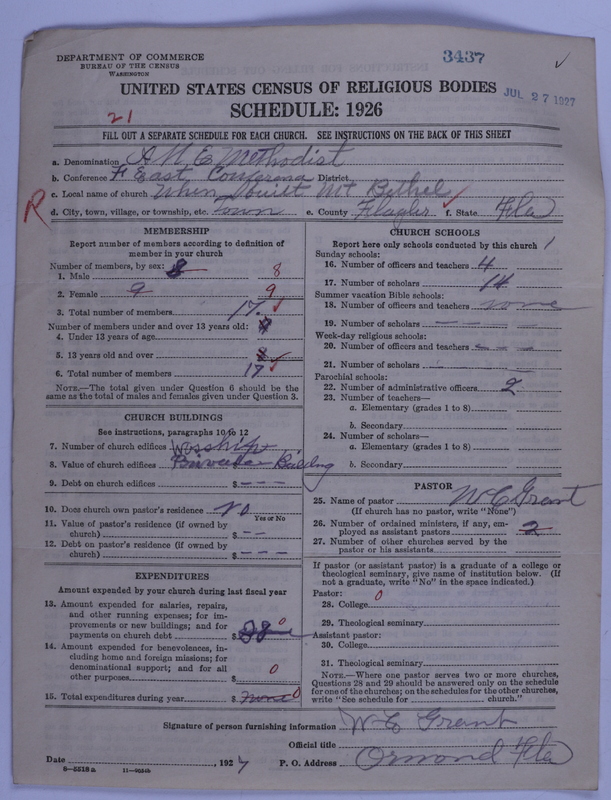 DEPARTMENT OF COMMERCE
BUREAU OF THE CENSUS
WASHINGTON
3437
UNITED STATES CENSUS OF RELIGIOUS BODIES
JUL 27 1927
SCHEDULE: 1926
21
FILL OUT A SEPARATE SCHEDULE FOR EACH CHURCH. SEE INSTRUCTIONS ON THE BACK OF THIS SHEET
a. Denomination A M E Methodist
b. Conference F East Conferena District
c. Local name of church When built Mt Bethel
R
d. City, town, village, or township, etc. Town e. County Flagler f. State Fla
MEMBERSHIP
Report number of members according to definition of
member in your church
Number of members, by sex:
1. Male 8 8
2. Female 9 9
3. Total number of members 17
Number of members under and over 13 years old:
4. Under 13 years of age
5. 13 years old and over 8
6. Total number of members 17
NOTE.—The total given under Question 6 should be
the same as the total of males and females given under Question 3.
CHURCH BUILDINGS
See instructions, paragraphs 10 to 12
7. Number of church edifices Worship
8. Value of church edifices Building
9. Debt on church edifices $ - - -
10. Does church own pastor's residence? no
Yes or No
11. Value of pastor's residence (if owned by
church) $ - -
12. Debt on pastor's residence (if owned by
church) $ - - -
EXPENDITURES
Amount expended by your church during last fiscal year
13. Amount expended for salaries, repairs,
and other running expenses; for im-
provements or new buildings; and for
payments on church debt $ 0
14. Amount expended for benevolences, in-
cluding home and foreign missions; for
denominational support; and for all
other purposes $ 0
15. Total expenditures during year $ none 0
CHURCH SCHOOLS
Report here only schools conducted by this church
Sunday schools:
16. Number of officers and teachers 4
17. Number of scholars 14
Summer vacation Bible schools:
18. Number of officers and teachers none
19. Number of scholars - - -
Week-day religious schools:
20. Number of officers and teachers - - -
21. Number of scholars - - -
Parochial schools:
22. Number of administrative officers 2
23. Number of teachers—
a. Elementary (grades 1 to 8)
b. Secondary
24. Number of scholars—
a. Elementary (grades 1 to 8)
b. Secondary
PASTOR
25. Name of pastor W C Grant
(If church has no pastor, write "None")
26. Number of ordained ministers, if any, em-
ployed as assistant pastors 2
27. Number of other churches served by the
pastor or his assistants
If pastor (or assistant pastor) is a graduate of a college or
theological seminary, give name of institution below. (If
not a graduate, write "No" in the space indicated.)
Pastor: 0
28. College
29. Theological seminary
Assistant pastor:
30. College
31. Theological seminary
NOTE.—Where one pastor serves two or more churches,
Questions 28 and 29 should be answered only on the schedule
for one of the churches; on the schedules for the other churches,
write "See schedule for church."
Signature of person furnishing information W C Grant
Official title
Date , 1927 P. O. Address Ormond Fla
8—5518a 11—9634b